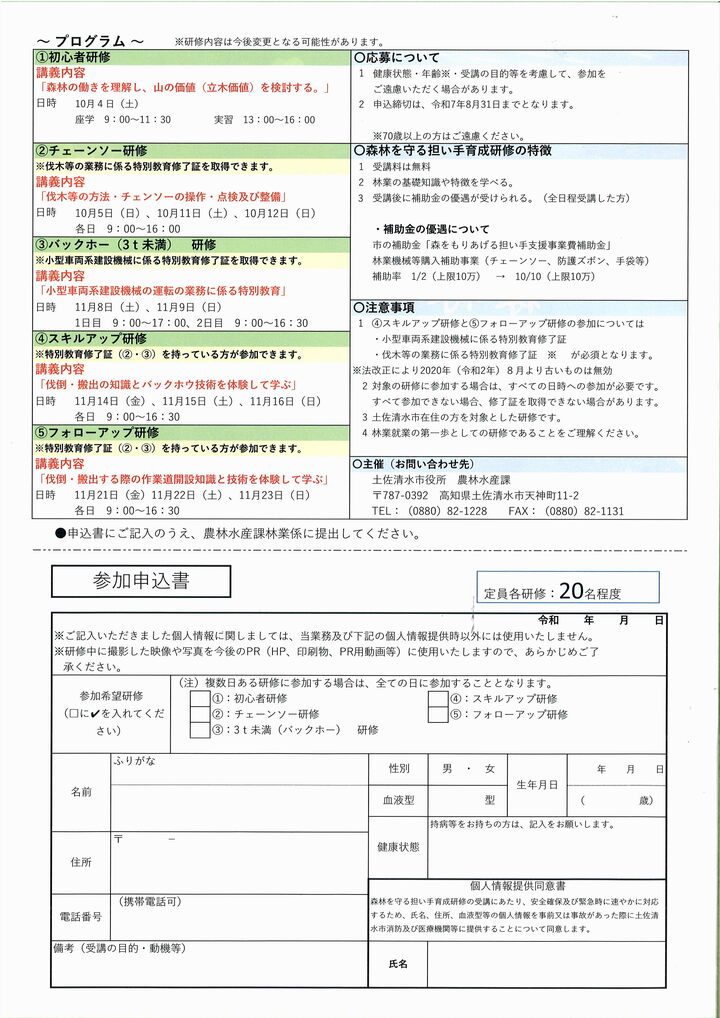 ～ プログラム ～　※研修内容は今後変更となる可能性があります。
①初心者研修
講義内容
「森林の働きを理解し、山の価値（立木価値）を検討する。」
日時　10月４日（土）
座学　9：00～11：30　　実習　13：00～16：00
②チェーンソー研修
※伐木等の業務に係る特別教育修了証を取得できます。
講義内容
「伐木等の方法・チェンソーの操作・点検及び整備」
日時　10月5日（日）、10月11日（土）、10月12日（日）
各日　9：00～16：00
③バックホー（3ｔ未満）　研修
※小型車両系建設機械に係る特別教育修了証を取得できます。
講義内容
「小型車両系建設機械の運転の業務に係る特別教育」
日時　11月8日（土）、11月9日（日）
1日目　9：00～17：00、2日目　9：00～16：30
④スキルアップ研修
※特別教育修了証（②・③）を持っている方が参加できます。
講義内容
「伐倒・搬出の知識とバックホウ技術を体験して学ぶ」
日時　11月14日（金）、11月15日（土）、11月16日（日）
各日　9：00～16：30
⑤フォローアップ研修
※特別教育修了証（②・③）を持っている方が参加できます。
講義内容
「伐倒・搬出する際の作業道開設知識と技術を体験して学ぶ」
日時　11月21日（金）11月22日（土）、11月23日（日）
各日　9：00～16：30
〇応募について
1　健康状態・年齢※・受講の目的等を考慮して、参加を
ご遠慮いただく場合があります。
2　申込締切は、令和7年8月31日までとなります。
※70歳以上の方はご遠慮ください。
〇森林を守る担い手育成研修の特徴
1　受講料は無料
2　林業の基礎知識や特徴を学べる。
3　受講後に補助金の優遇が受けられる。（全日程受講した方）
・補助金の優遇について
市の補助金「森をもりあげる担い手支援事業費補助金」
林業機械等購入補助事業（チェーンソー、防護ズボン、手袋等）
補助率　1/2（上限10万）　→　10/10（上限10万）
〇注意事項
1　④スキルアップ研修と⑤フォローアップ研修の参加については
・小型車両系建設機械に係る特別教育修了証
・伐木等の業務に係る特別教育修了証　※　が必須となります。
※法改正により2020年（令和2年）８月より古いものは無効
2 対象の研修に参加する場合は、すべての日時への参加が必要です。
すべて参加できない場合、修了証を取得できない場合があります。
3 土佐清水市在住の方を対象とした研修です。
4 林業就業の第一歩としての研修であることをご理解ください。
〇主催（お問い合わせ先）
土佐清水市役所　農林水産課
〒787-0392　高知県土佐清水市天神町11-2
TEL：（0880）82-1228　　FAX：（0880）82-1131
●申込書にご記入のうえ、農林水産課林業係に提出してください。
参加申込書
定員各研修：20名程度
令和　　年　　月　　日
※ご記入いただきました個人情報に関しましては、当業務及び下記の個人情報提供時以外には使用いたしません。
※研修中に撮影した映像や写真を今後のPR（HP、印刷物、PR用動画等）に使用いたしますので、あらかじめご了
承ください。
参加希望研修
（□に✔を入れてくだ
さい）
（注）複数日ある研修に参加する場合は、全ての日に参加することとなります。
①：初心者研修
②：チェーンソー研修
③：3ｔ未満（バックホー）　研修
④：スキルアップ研修
⑤：フォローアップ研修
名前
ふりがな
性別
男　・　女
生年月日
年　　月　　日
血液型
型
（　　　　歳）
住所
〒　　　－
健康状態
持病等をお持ちの方は、記入をお願いします。
電話番号
（携帯電話可）
個人情報提供同意書
森林を守る担い手育成研修の受講にあたり、安全確保及び緊急時に速やかに対応
するため、氏名、住所、血液型等の個人情報を事前又は事故があった際に土佐清
水市消防及び医療機関等に提供することについて同意します。
備考（受講の目的・動機等）
氏名